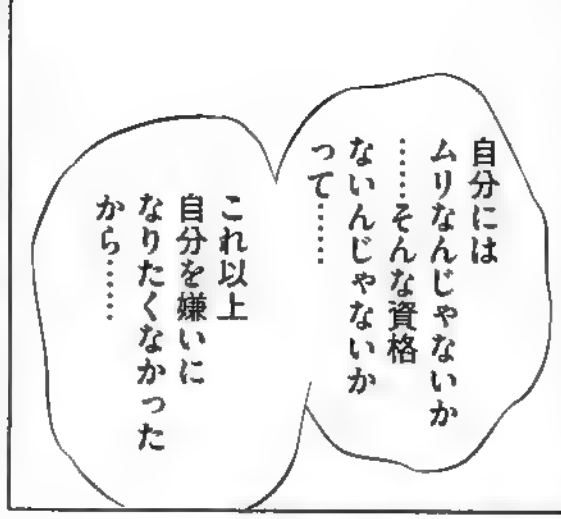 自分には
ムリなんじゃないか
……そんな資格
ないんじゃないか
って……
これ以上
自分を嫌いに
なりたくなかった
から……